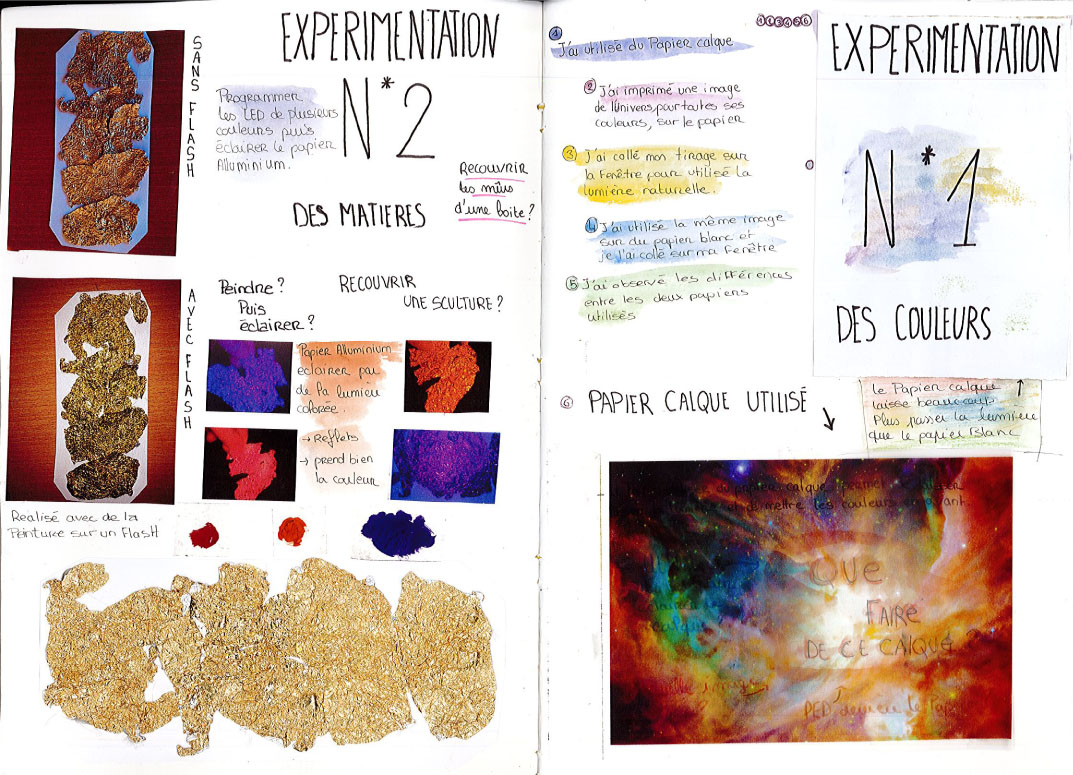 EXPERIMENTATION
N*2
DES MATIERES
SANS FLASH
Programmer
les LED de plusieurs
couleurs puis
éclairer le papier
Alluminium.
Recouvrir
les mûrs
d'une boite ?
AVEC FLASH
Peindre ?
Puis
éclairer ?
RECOUVRIR
UNE SCULTURE ?
Papier Alluminium
eclairer par
de la lumieu
colorée.
→ Reflets
→ prend bien
la couleur
Realisé avec de la
Peinture sur un Flash
1 2 3 4 5 6
1 J'ai utilisé du Papier calque
2 J'ai imprimé une image
de l'Univers, pour toutes ses
couleurs, sur le papier
3 J'ai collé mon tirage sur
la fenêtre pour utilisé la
lumière naturelle.
4 J'ai utilisé la même image
sur du papier blanc et
je l'ai collé sur ma fenêtre
5 J'ai observé les différences
entre les deux papiers
utilisés
EXPERIMENTATION
N*1
DES COULEURS
le Papier calque
laisse beaucoup
Plus passer la lumière
que le papier Blanc
6 PAPIER CALQUE UTILISÉ
papier calque permet
mettre les couleurs
QUE
FAIRE
DE CE CALQUE